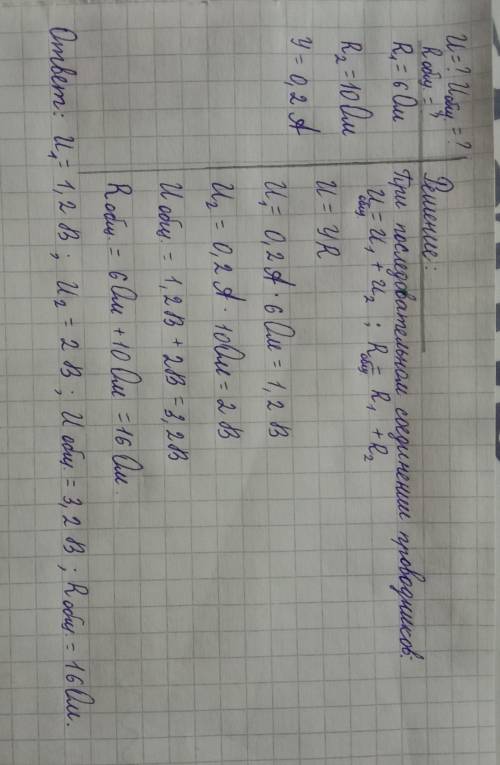 U=? Uобщ = ?
Rобщ = ?
R₁ = 6 Ом
R₂ = 10 Ом
У = 0,2 А
Решение:
При последовательном соединении проводников:
Uобщ = U₁ + U₂ ; Rобщ = R₁ + R₂
U = УR
U₁ = 0,2 А · 6 Ом = 1,2 В
U₂ = 0,2 А · 10 Ом = 2 В
Uобщ. = 1,2 В + 2В = 3,2В
Rобщ. = 6 Ом + 10 Ом = 16 Ом.
Ответ: U₁ = 1,2 В ; U₂ = 2 В ; Uобщ = 3,2 В ; Rобщ. = 16 Ом.